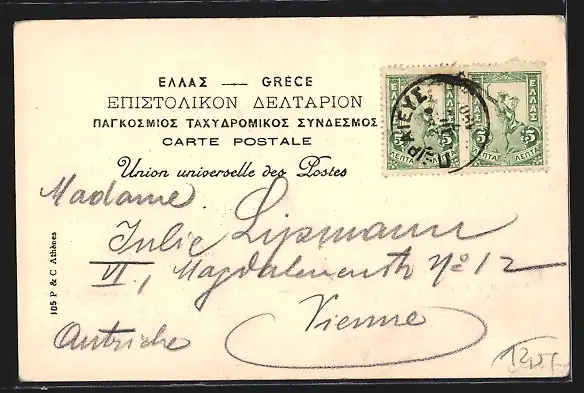 ΕΛΛΑΣ — GRÈCE
ΕΠΙΣΤΟΛΙΚΟΝ ΔΕΛΤΑΡΙΟΝ
ΠΑΓΚΟΣΜΙΟΣ ΤΑΧΥΔΡΟΜΙΚΟΣ ΣΥΝΔΕΣΜΟΣ
CARTE POSTALE
Union universelle des Postes
ΕΛΛΑΣ
5 5
ΛΕΠΤΑ
ΕΛΛΑΣ
5 5
ΛΕΠΤΑ
ΠΕΙΡΑΙΕΥΣ
Madame
Julie Lipmann
VI, Magdalenenstr No 12
Vienne
Autriche
105 P & C Athènes